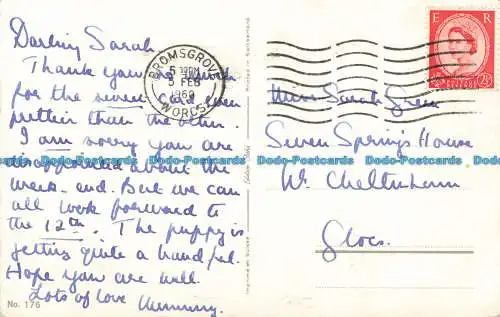 Darling Sarah
Thank you so much
for the sweet card even
prettier than the other.
I am sorry you are
disappointed about the
week-end. But we can
all look forward to
the 12th. The puppy is
getting quite a handful.
Hope you are well.
Lots of love Mummy.
No. 176
BROMSGROVE
5 30PM
5 FEB
1960
WORCS
E R
2½D
Miss Sarah Green
Seven Springs House
Nr. Cheltenham
Glos.
Dodo-Postcards Dodo-Postcards Dodo-Postcards Dodo-Postcards Dodo-Postcards